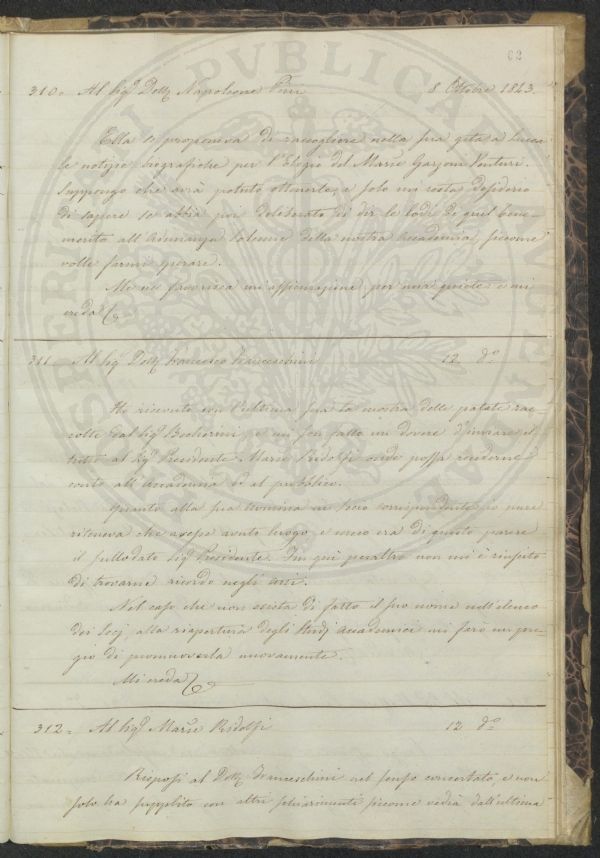 62
310. Al Sigr Dottr Napoleone Pini 8. Ottobre 1843.
Ella si proponeva di raccogliere nella sua gita a Lucca
le notizie biografiche per l'Elogio del Marse Garzoni Venturi.
Suppongo che avrà potuto ottenerle, e solo mi resta desiderio
di sapere se abbia poi deliberato di dir le lodi di quel bene-
merito all'Adunanza solenne della nostra Accademia, siccome
volle farmi sperare.
Me ne favorisca un'affermazione per mia quiete e mi
creda
311. Al Sigr Dottr Francesco Franceschini 12 do
Ho ricevuto con l'ultima sua la mostra delle patate rac-
colte dal Sigr Becherini, e mi son fatto un dovere d'inviare il
tutto al Sigr Presidente Marse Ridolfi onde possa renderne
conto all'Accademia ed al pubblico.
Quanto alla sua nomina in socio corrispondente io pure
riteneva che avesse avuto luogo, e era di questo parere
il sullodato Sigr Presidente. Fin qui peraltro non mi è riuscito
di trovarne ricordo negli Atti.
Nel caso che non esista di fatto il suo nome nell'elenco
dei Socj alla riapertura degli studj accademici mi farò un pre-
gio di promuoverla nuovamente.
Mi creda
312. Al Sigr Marse Ridolfi 12 do
Risposi al Dottr Franceschini nel senso concertato, e non
solo ha supplito con altri schiarimenti siccome vedrà dall'ultima
PVBLICA